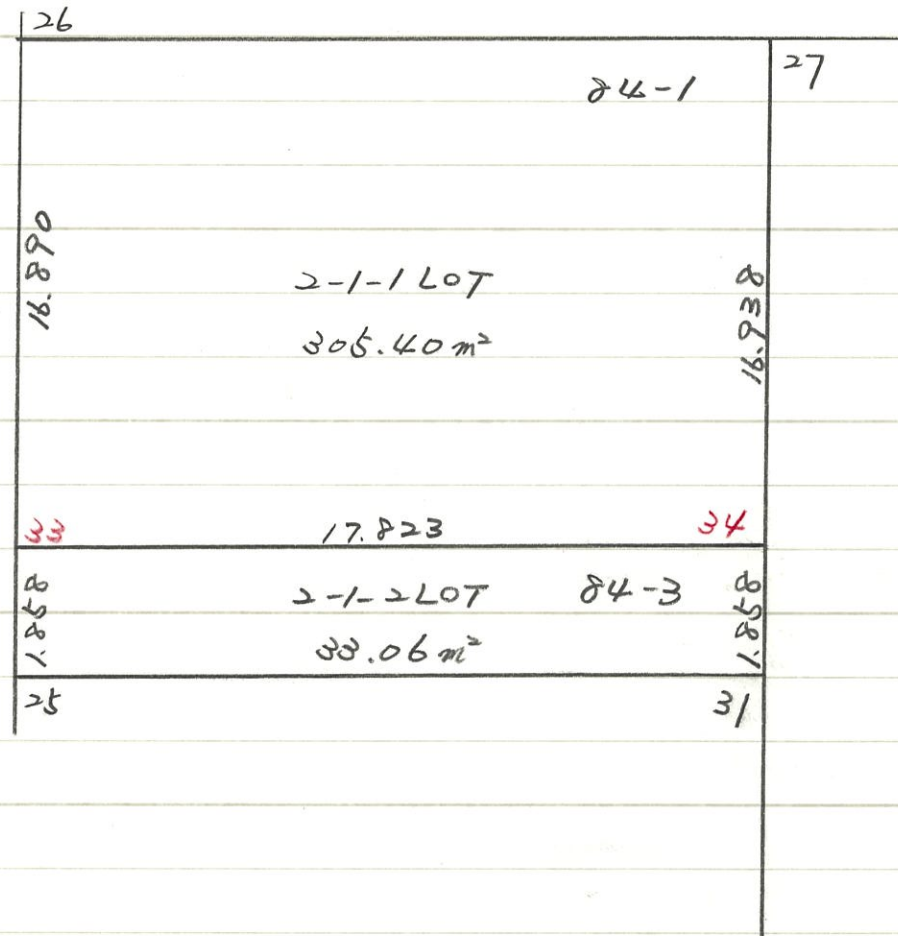 26
27
84-1
16.890
2-1-1 LOT
305.40 m²
16.938
33
17.823
34
1.858
2-1-2 LOT
84-3
1.858
33.06 m²
25
31